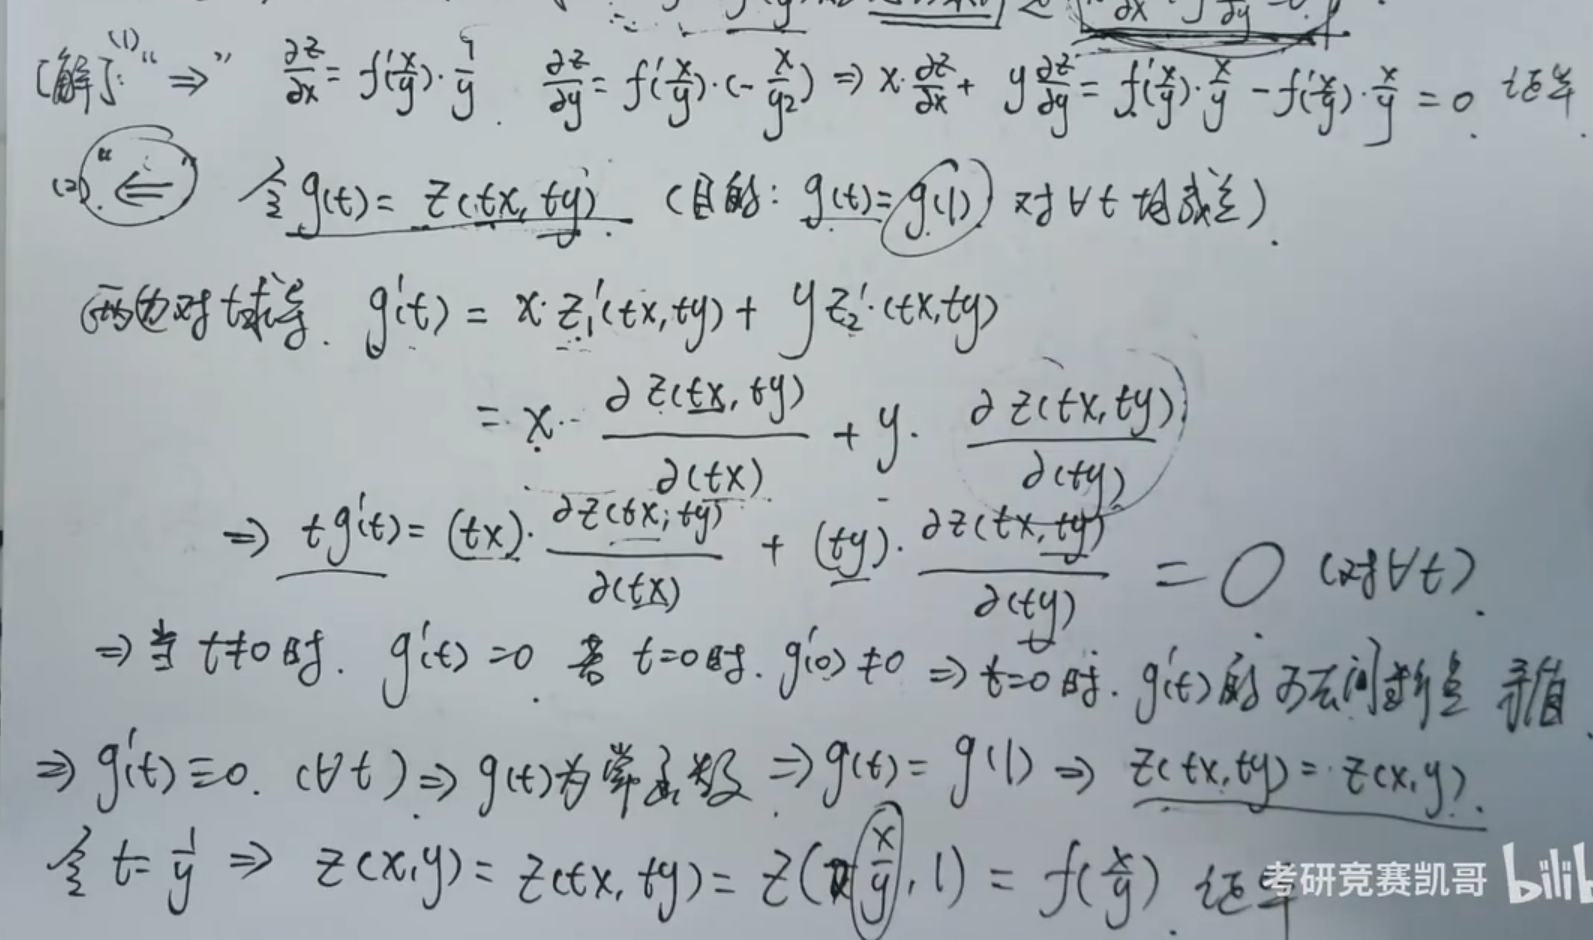 [解]: (1) "⇒" ∂z/∂x = f'(x/y)·1/y. ∂z/∂y = f'(x/y)·(-x/y²) ⇒ x·∂z/∂x + y∂z/∂y = f'(x/y)·x/y - f'(x/y)·x/y = 0. 证毕.
(2). "⇐" 令 g(t) = z(tx, ty). (目的: g(t) = g(1) 对∀t 均成立).
两边对t求导. g'(t) = x·z₁'(tx, ty) + y z₂'·(tx, ty)
= x·∂z(tx, ty)/∂(tx) + y·∂z(tx, ty)/∂(ty)
⇒ tg'(t) = (tx)·∂z(tx, ty)/∂(tx) + (ty)·∂z(tx, ty)/∂(ty) = 0 (对∀t).
⇒ 当 t≠0时. g'(t) = 0. 若 t=0时. g'(0) ≠ 0 ⇒ t=0时. g'(t)的可去间断点 矛盾.
⇒ g'(t) ≡ 0. (∀t) ⇒ g(t)为常函数 ⇒ g(t) = g(1) ⇒ z(tx, ty) = z(x, y).
令 t = 1/y ⇒ z(x, y) = z(tx, ty) = z(x/y, 1) = f(x/y). 证毕
考研竞赛凯哥 bilib